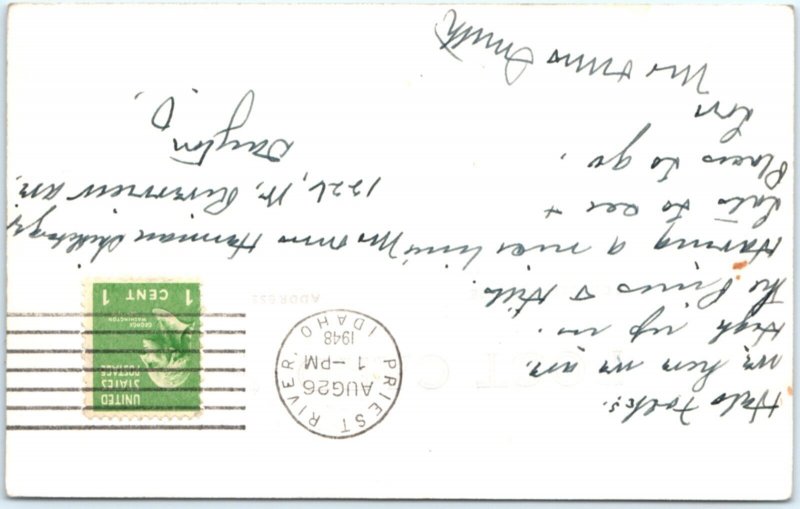 Helo Folks.
we, here we are.
High up in.
The Pines & Hills.
Having a nice time
Lots to see +
Places to go.
Love
Mr & Mrs Smith
Mr & Mrs Harman
1226, W. Riverview Ave,
Dayton
O,
POST C
ADDRESS
PRIEST RIVER, IDAHO
AUG 26
1 -PM
1948
UNITED
STATES
POSTAGE
GEORGE
WASHINGTON
1 CENT 1